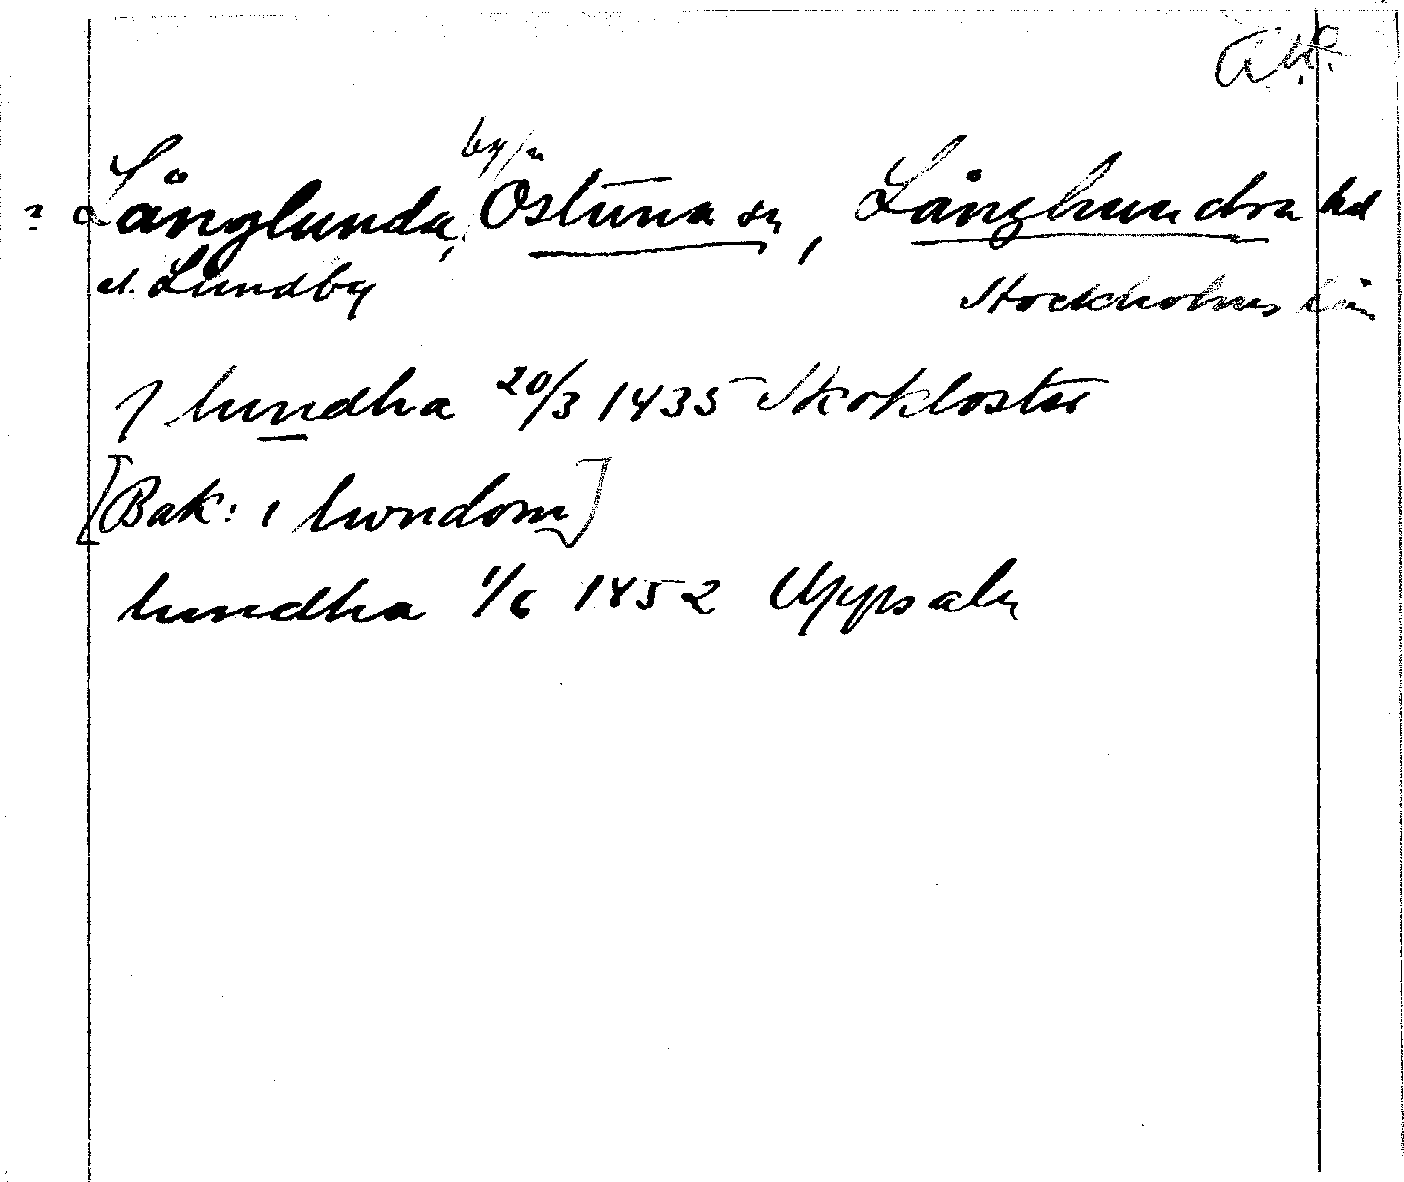 ? Långlunda, Östuna sn, Långhundra hd
el. Lundby
Stockholms län
J lundha 20/3 1435 Skokloster
[Bak: i lwndom]
lundha 1/6 1452 Uppsala